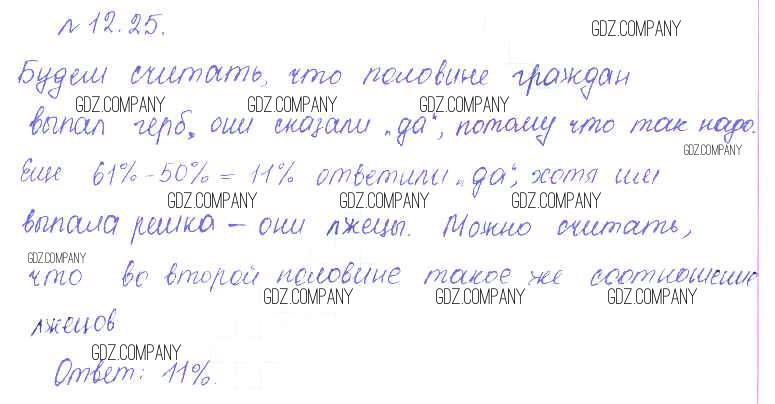 № 12.25.
GDZ.COMPANY
Будем считать, что половине граждан
GDZ.COMPANY GDZ.COMPANY GDZ.COMPANY
выпал герб, они сказали „да“, потому что так надо.
GDZ.COMPANY
Еще 61% - 50% = 11% ответили „да“, хотя им
GDZ.COMPANY GDZ.COMPANY GDZ.COMPANY
выпала решка – они лжецы. Можно считать,
GDZ.COMPANY
что во второй половине такое же соотношение
GDZ.COMPANY GDZ.COMPANY GDZ.COMPANY
лжецов
GDZ.COMPANY
Ответ: 11%.